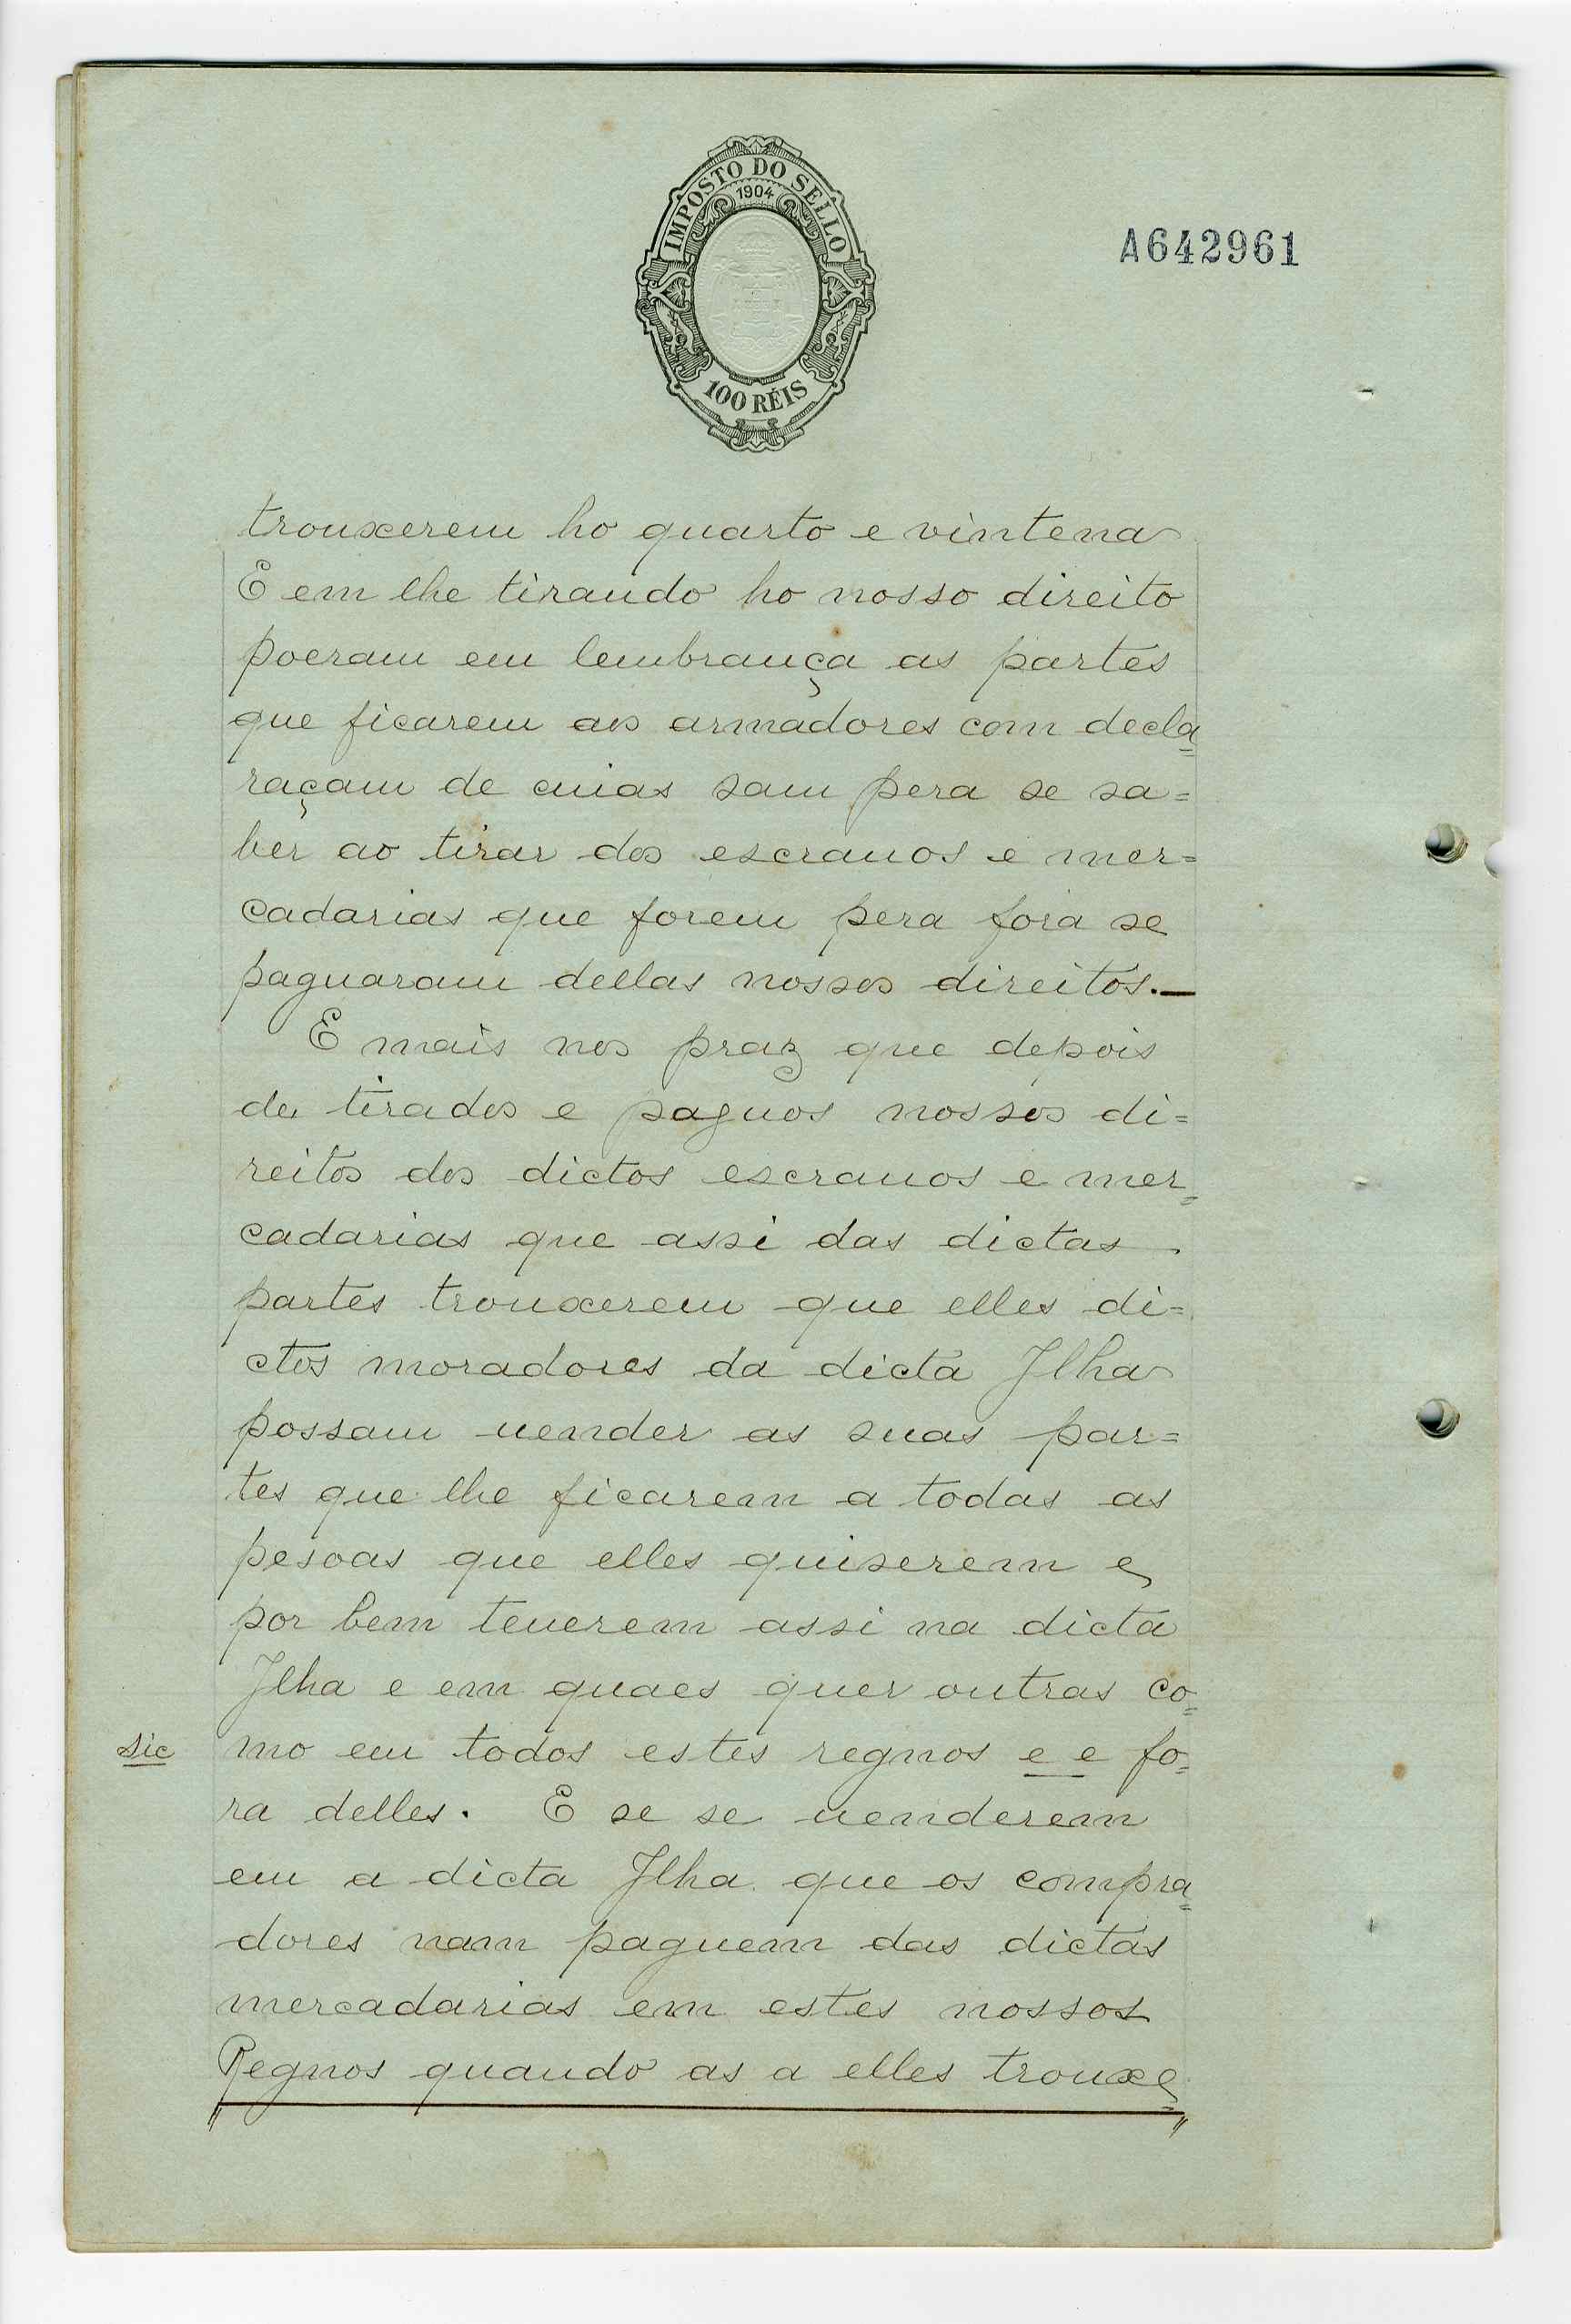 IMPOSTO DO SELLO
1904
100 RÉIS
A642961
trouxerem ho quarto e vintena
E em lhe tirando ho nosso direito
poeram em lembrança as partes
que ficarem aos armadores com decla=
raçam de cuias sam pera se sa=
ber ao tirar dos escrauos e mer=
cadarias que forem pera fora se
paguaram dellas nossos direitos.—
E mais nos praz que depois
de tirados e paguos nossos di=
reitos dos dictos escrauos e mer=
cadarias que assi das dictas
partes trouxerem que elles di=
ctos moradores da dicta Jlha
possam uender as suas par=
tes que lhe ficarem a todas as
pesoas que elles quiserem e
por bem teuerem assi na dicta
Jlha e em quaes quer outras co=
sic mo em todos estes regnos e e fo=
ra delles. E se se uenderem
em a dicta Jlha que os compra=
dores nam paguem das dictas
mercadarias em estes nossos
Regnos quando as a elles trouxe=